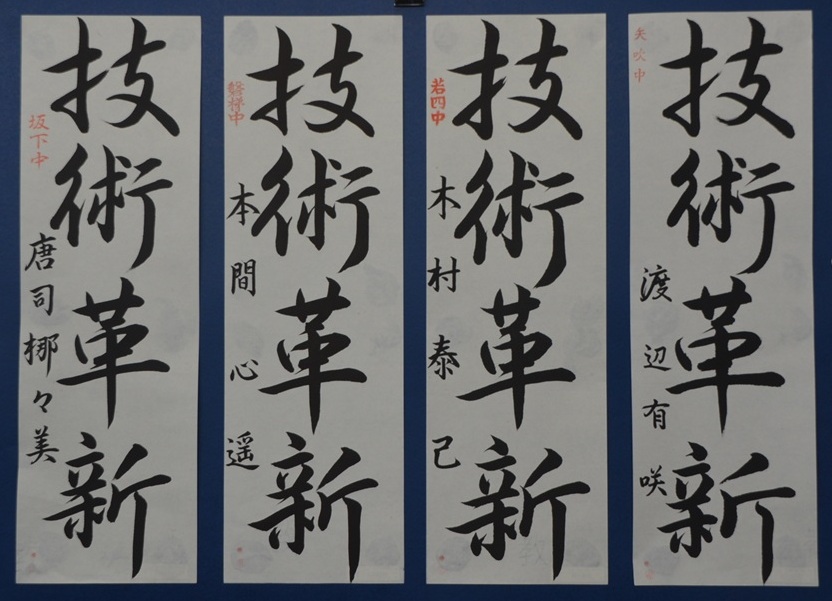 技術革新
矢吹中
渡辺有咲
技術革新
若四中
木村泰己
技術革新
磐梯中
本間心遥
技術革新
坂下中
唐司梛々美